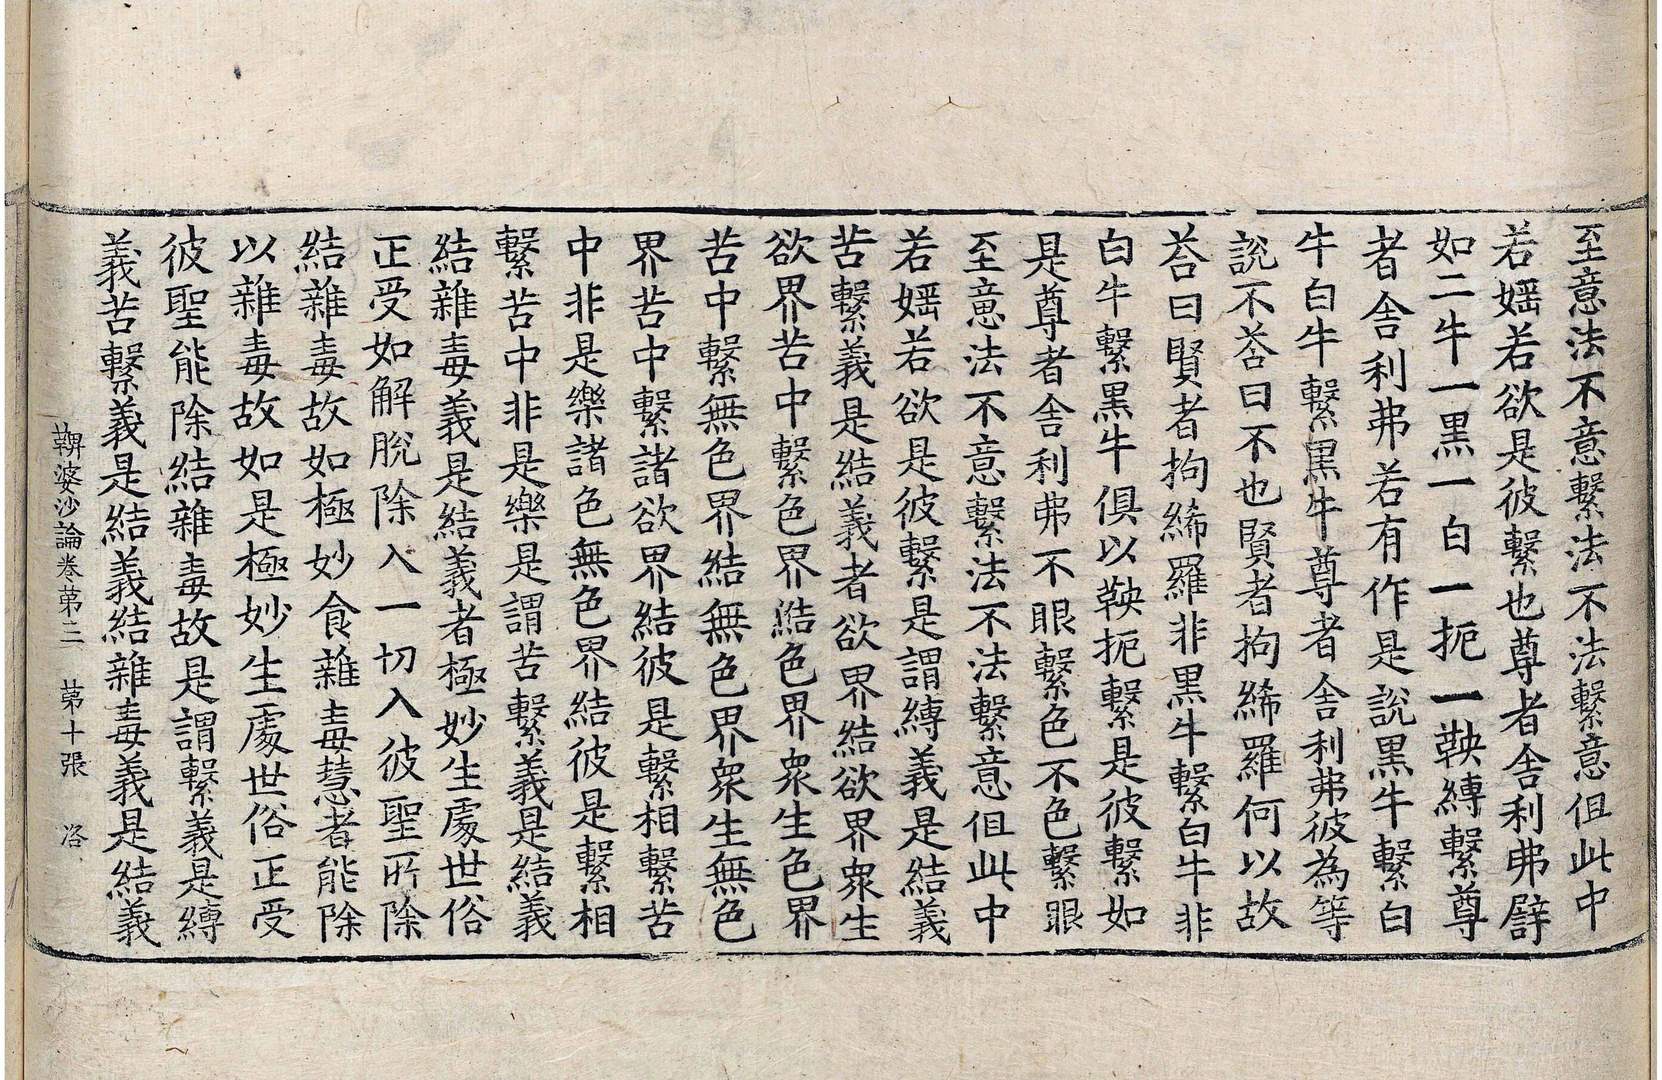 至意法不意繫法不法繫意但此中
若婬若欲是彼繫也尊者舍利弗譬
如二牛一黒一白一扼一鞅縛繫尊
者舍利弗若有作是說黒牛繫白
牛白牛繫黒牛尊者舍利弗彼為等
說不荅曰不也賢者拘絺羅何以故
荅曰賢者拘絺羅非黒牛繫白牛非
白牛繫黒牛俱以鞅扼繫是彼繫如
是尊者舍利弗不眼繫色不色繫眼
至意法不意繫法不法繫意但此中
若婬若欲是彼繫是謂縛義是結義
苦繫義是結義者欲界結欲界衆生
欲界苦中繫色界結色界衆生色界
苦中繫無色界結無色界衆生無色
界苦中繫諸欲界結彼是繫相繫苦
中非是樂諸色無色界結彼是繫相
繫苦中非是樂是謂苦繫義是結義
結雜毒義是結義者極妙生處世俗
正受如解脫除入一切入彼聖所除
結雜毒故如極妙食雜毒慧者能除
以雜毒故如是極妙生處世俗正受
彼聖能除結雜毒故是謂繫義是縛
義苦繫義是結義結雜毒義是結義
鞞婆沙論卷第二　第十張　洛